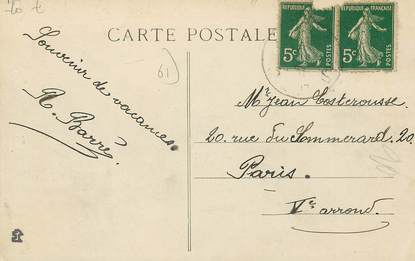 CARTE POSTALE
REPUBLIQUE FRANÇAISE
5c POSTES
REPUBLIQUE FRANÇAISE
5c POSTES
61
Souvenir de vacances
R. Barré
Mr Jean Costerousse
20. rue du Sommerard. 20.
Paris.
Ve arrond.